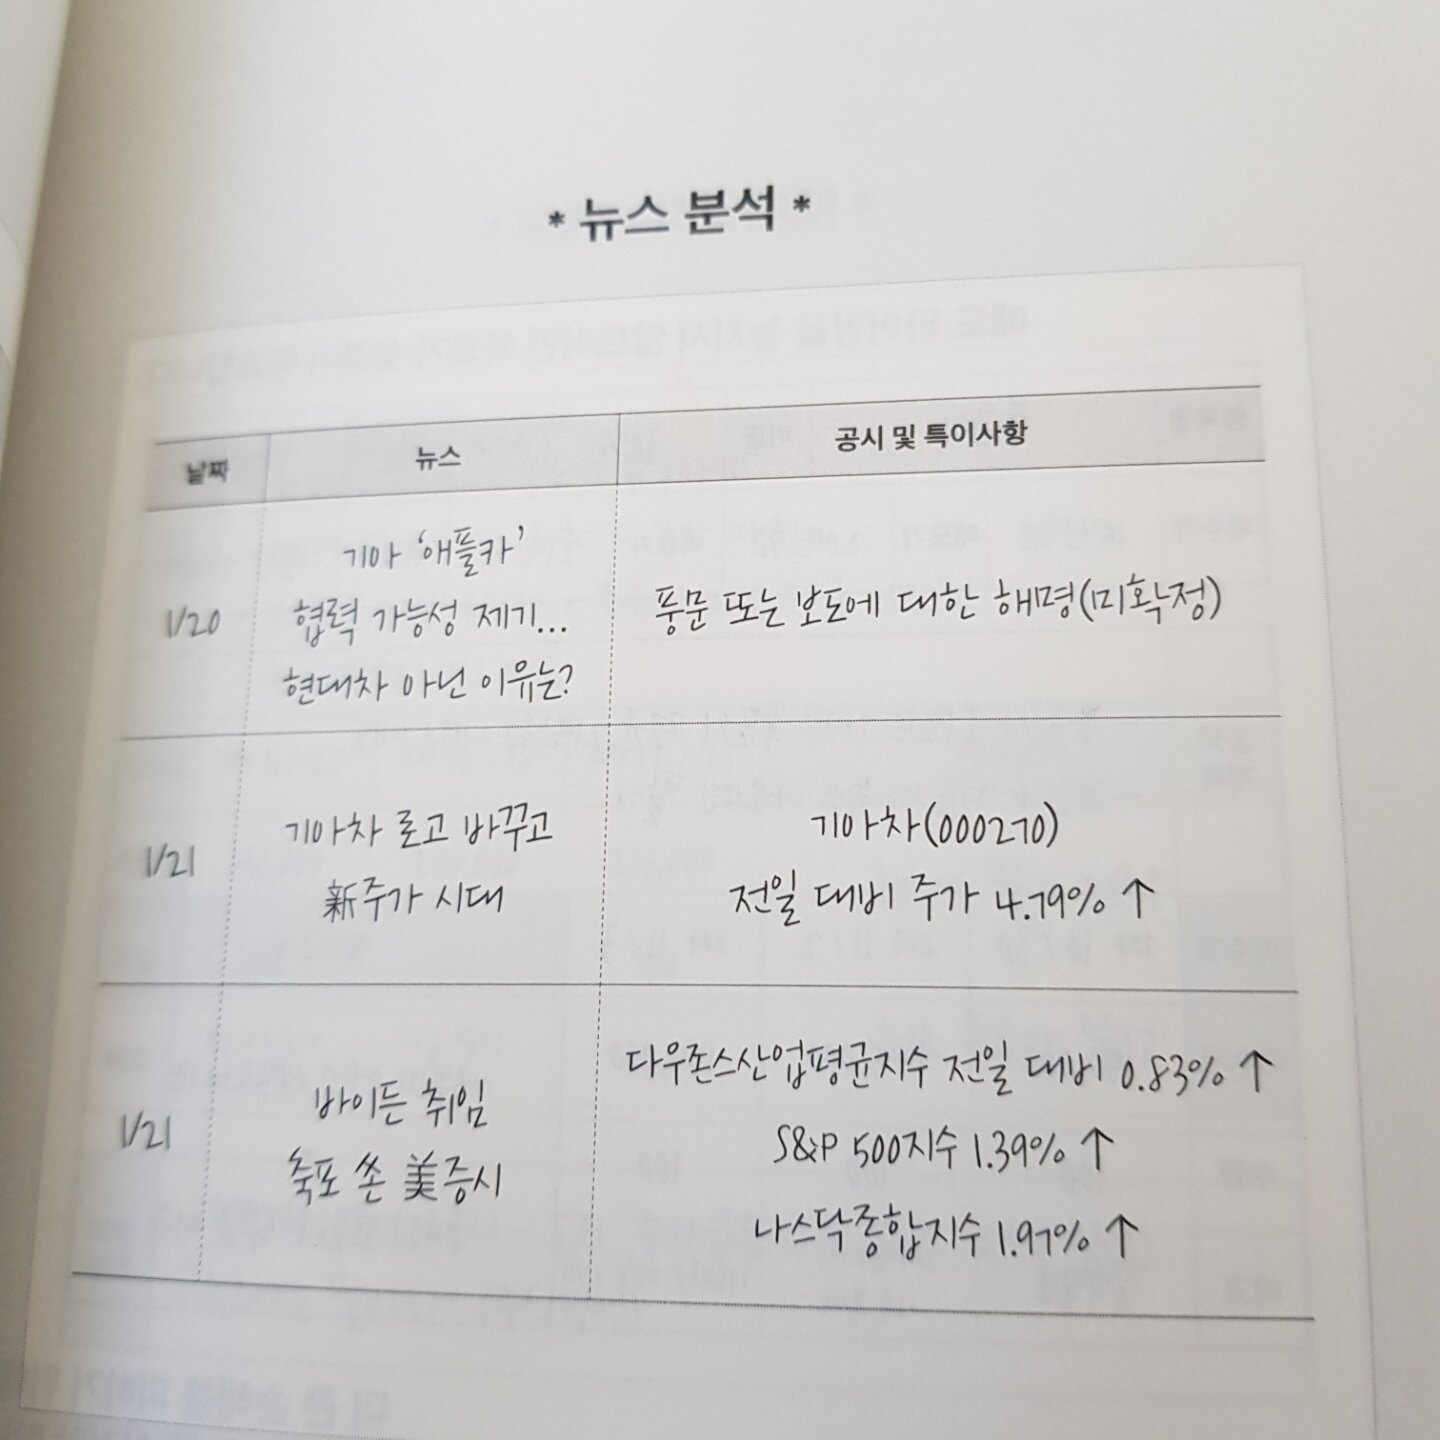 * 뉴스 분석 *
날짜
뉴스
공시 및 특이사항
1/20
기아 ‘애플카’
협력 가능성 제기...
현대차 아닌 이유는?
풍문 또는 보도에 대한 해명(미확정)
1/21
기아차 로고 바꾸고
新주가 시대
기아차(000270)
전일 대비 주가 4.79% ↑
1/21
바이든 취임
축포 쏜 美증시
다우존스산업평균지수 전일 대비 0.83% ↑
S&P 500지수 1.39% ↑
나스닥종합지수 1.97% ↑